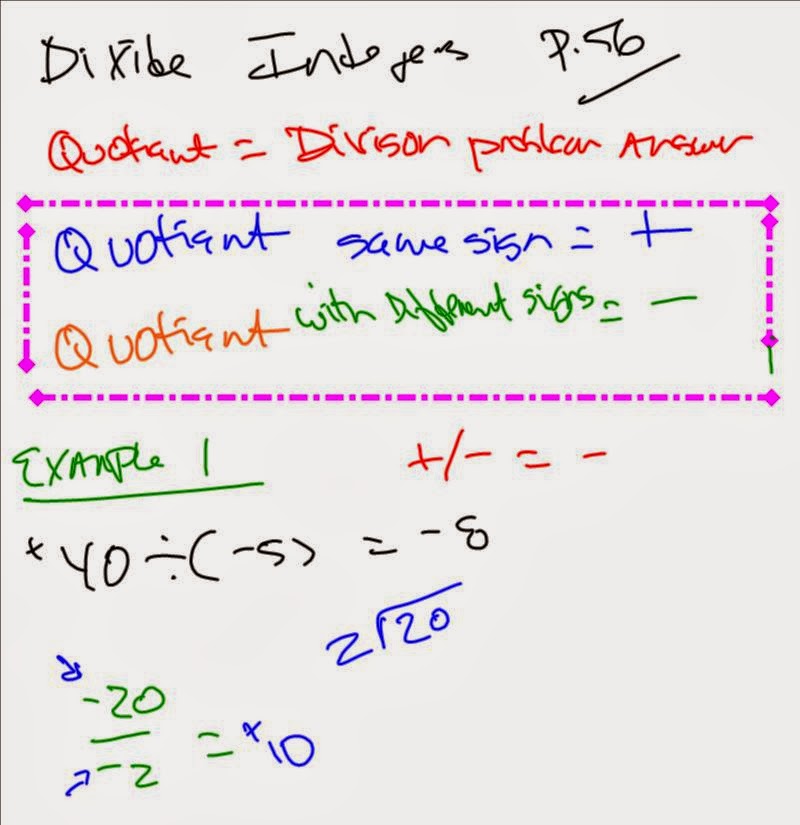 Divide Integers P.56
Quotiant = Divison problem Answer
Quotiant same sign = +
Quotiant with Different signs = -
Example 1 +/- = -
+40 ÷ (-5) = -8
2⟌20
-20/-2 = +10